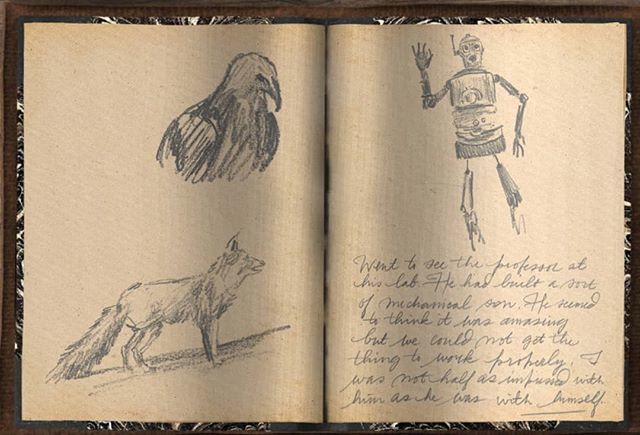 Went to see the professor at
his lab. He had built a sort
of mechanical son. He seemed
to think it was amazing
but we could not get the
thing to work properly. I
was not half as impressed with
him as he was with himself.